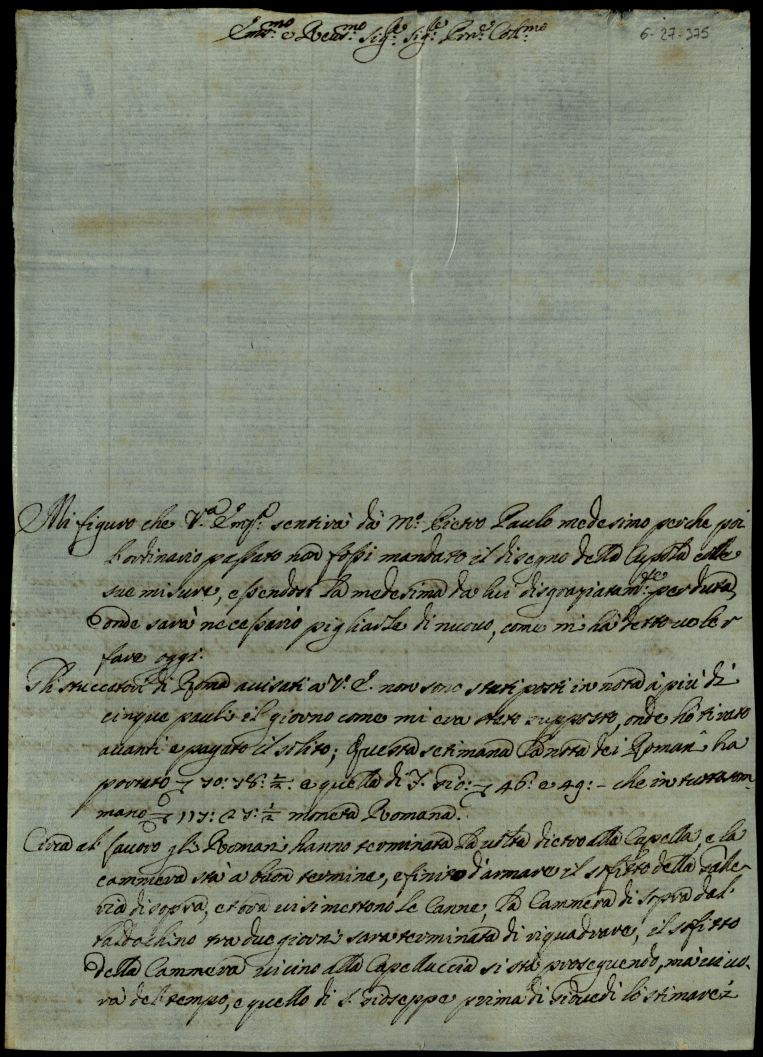 Em.mo e Reu.mo Sig.re Sig.re Pron.e Coll.mo
6-27-375
Mi figuro che V.a Em.a sentirà dà M.o Pietro Paulo medesimo perche poi
l'ordinario passato non fossi mandato il disegno della Cupola colle
sue misure, essendosi la medesima da lui disgraziatam.te perduta,
onde sarà necessario pigliarla di nuovo, come mi hà detto voler
fare oggi.
Gli stuccatori di Roma avisati a V. E. non sono stati posti in nota à più di
cinque pauli il giorno come mi era stato supposto, onde hò tirato
avanti e pagato il solito; Questa setimana la nota dei Romani ha
portato 70: 78: ½: e quella di S. Gio: 46: e 49: - che in tutto som-
mano 117: 27: ½ moneta Romana.
Circa al lavoro gli Romani hanno terminata la volta dietro alla Capella, e la
cammera stà a buon termine, e finito d'armare il sofitto della Galle-
ria di sopra, et ora vi si mettono le Canne, la Cammera di sopra dal
baldachino tra due giorni sara terminata di riquadrare, il sofitto
della Cammera vicino alla Capelluccia si stà proseguendo, mà vi vo-
rà del tempo, e quello di S. Gioseppe prima di Giovedi lò stimarei